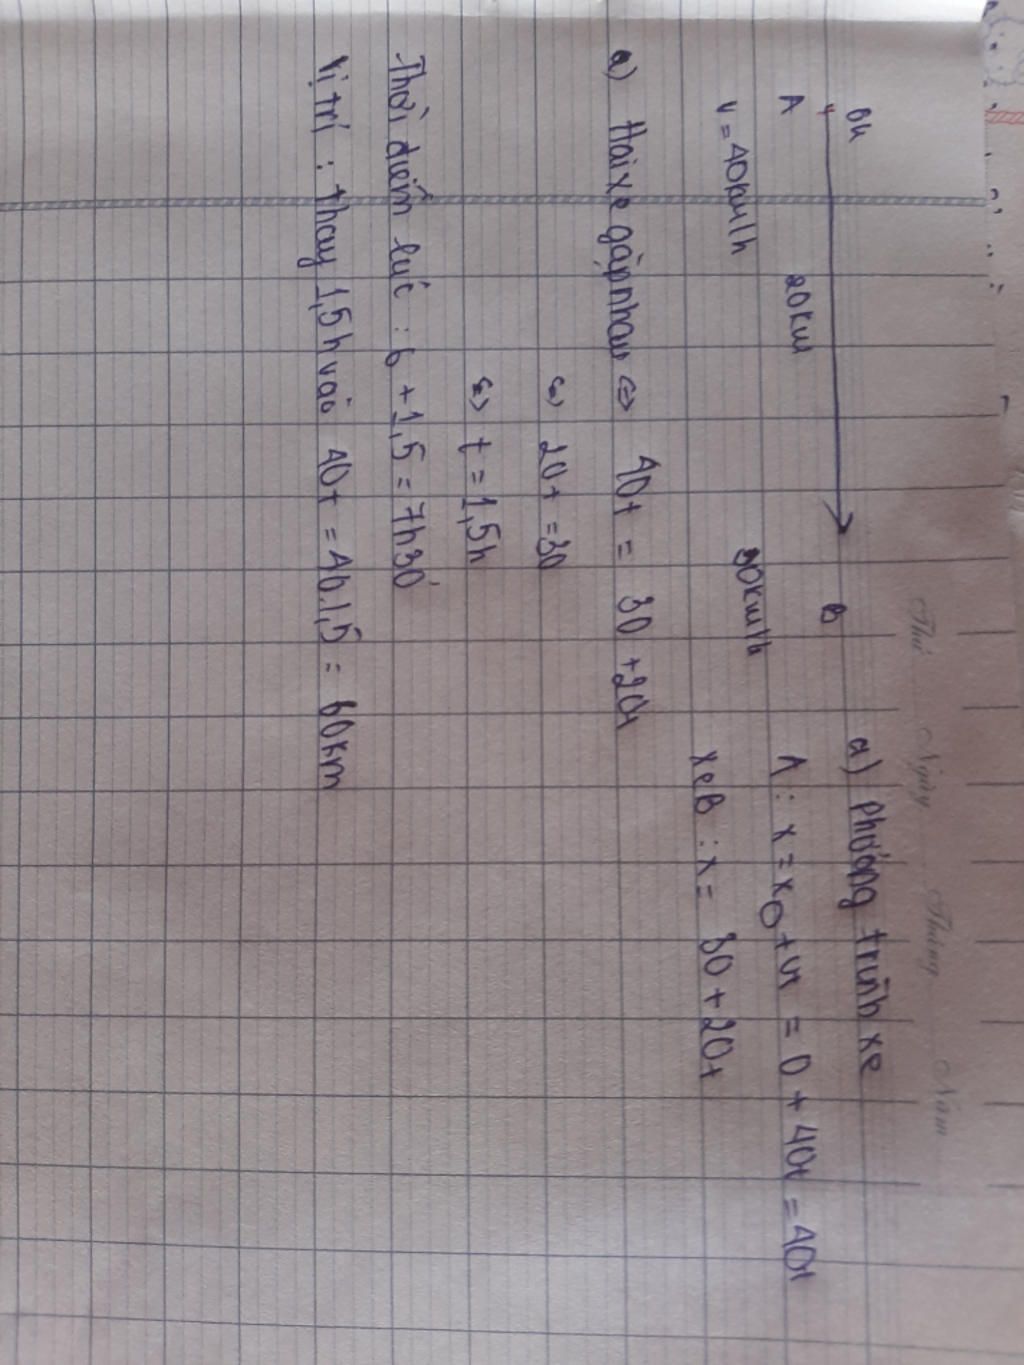 Thứ Ngày Tháng Năm
6h
A 20km B
v = 40km/h 30km/h
a) Phương trình xe
A : x = x0 + vt = 0 + 40t = 40t
xe B : x = 30 + 20t
a) Hai xe gặp nhau <=> 40t = 30 + 20t
<=> 20t = 30
<=> t = 1,5h
Thời điểm lúc : 6 + 1,5 = 7h30'
Vị trí : thay 1,5h vào 40t = 40.1,5 = 60km